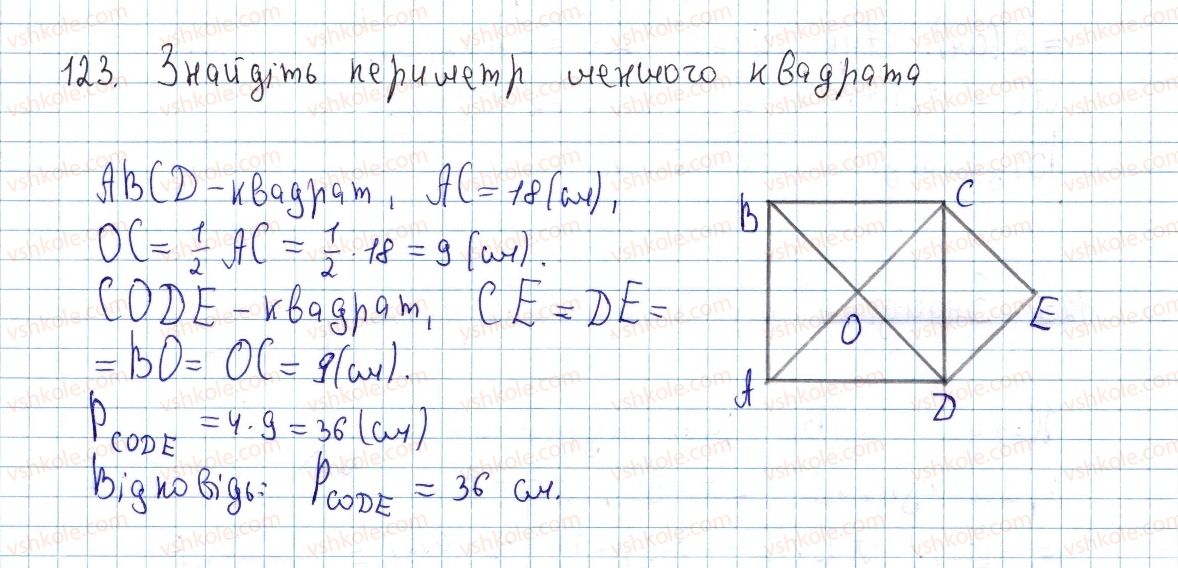 123. Знайдіть периметр меншого квадрата
ABCD - квадрат, AC = 18 (см),
OC = 1/2 AC = 1/2 · 18 = 9 (см).
CODE - квадрат, CE = DE =
= BO = OC = 9 (см).
P CODE = 4 · 9 = 36 (см)
Відповідь: P CODE = 36 см.
B
C
O
E
A
D
vshkole.com